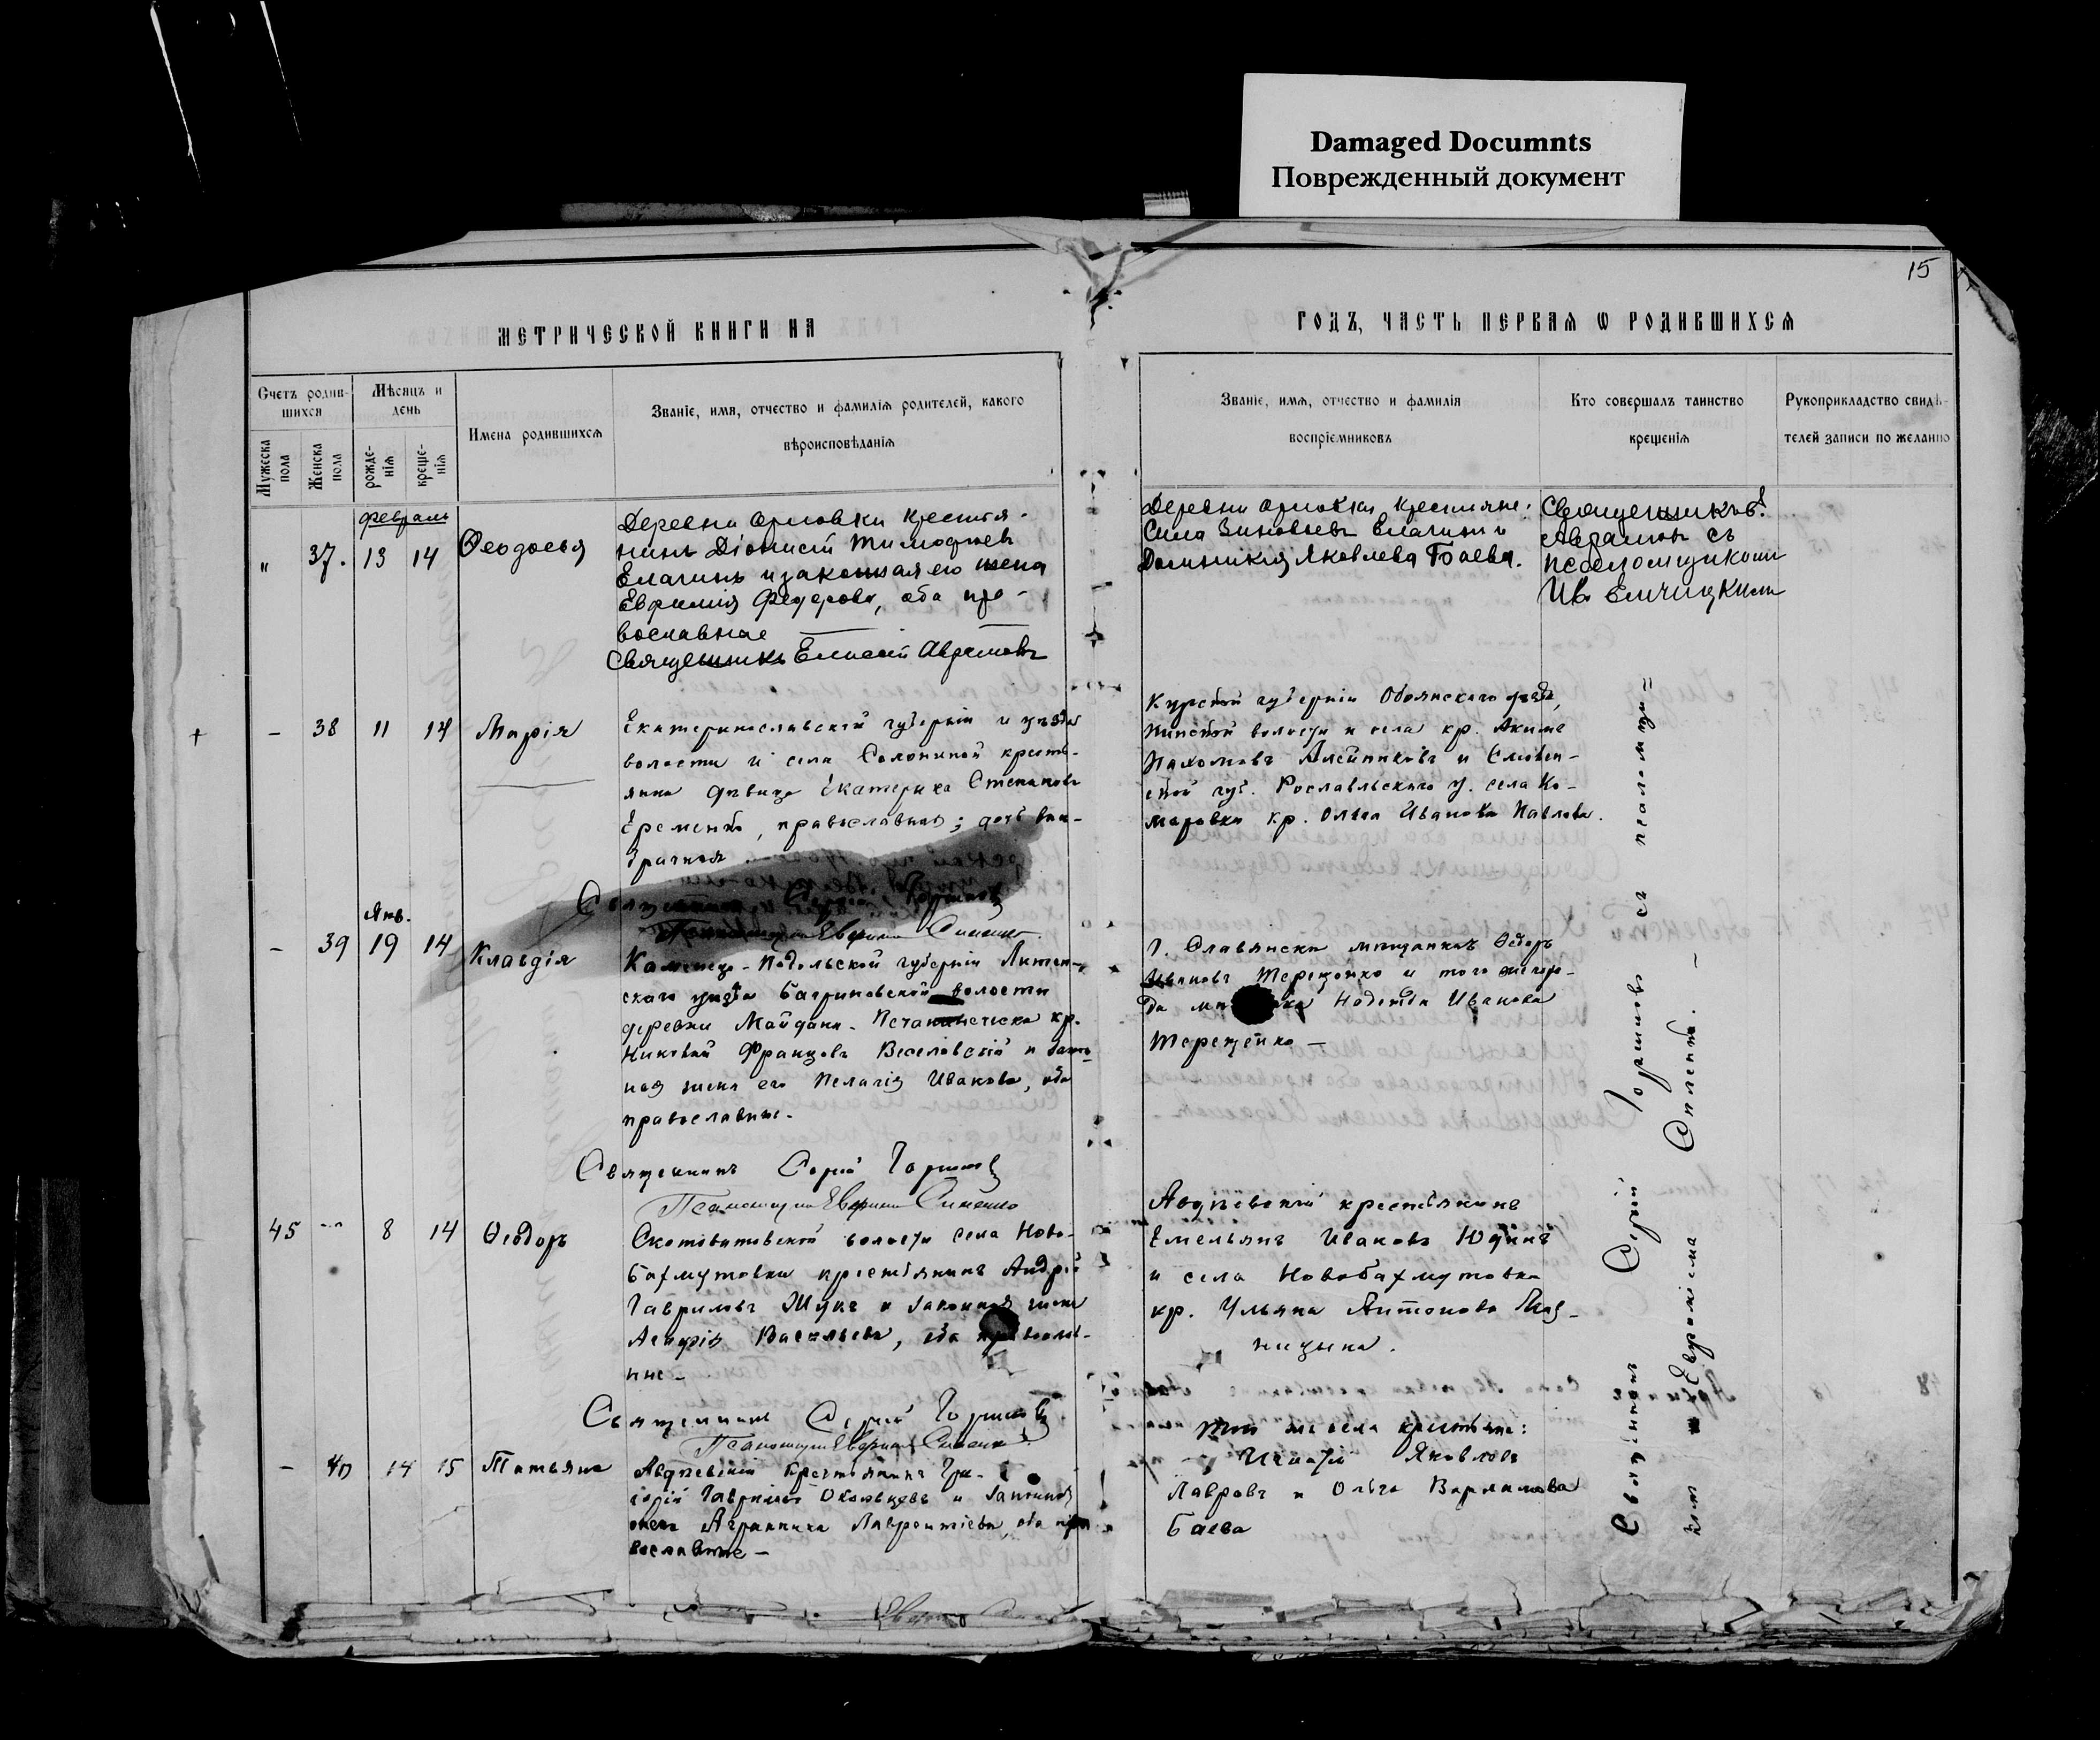 Damaged Documnts
Поврежденный документ
15
МЕТРИЧЕСКОЙ КНИГИ НА
ГОДЪ, ЧАСТЬ ПЕРВАЯ Ѡ РОДИВШИХСЯ
Счетъ родив-
шихся
Мужеска
пола
Женска
пола
Мѣсяцъ и
день
рожде-
нія
креще-
нія
Имена родившихся
Званіе, имя, отчество и фамилія родителей, какого
вѣроисповѣданія
Званіе, имя, отчество и фамилія
воспріемниковъ
Кто совершалъ таинство
крещенія
Рукоприкладство свидѣ-
телей записи по желанію
февраль
„ 37. 13 14 Ѳеодосья
Деревни Орловки крестья-
нинъ Діонисій Тимофеевъ
Елагинъ и законная его жена
Евфимія Федорова, оба пра-
вославные
Священникъ Елисей Авраамовъ
Деревни Орловки крестьяне:
Сила Зиновьевъ Елагинъ и
Домникія Яковлева Баева.
Священникъ Е.
Авраамовъ съ
псаломщикомъ
Ив.
- 38 11 14 Марія
Екатеринославской губерніи и уѣзда
волости и села Солонаной кресть-
янка дѣвица Екатерина Степанова
Еременко, православная; дочь вне-
брачная.
Священникъ Сергій
Псаломщикъ
Курской губерніи Обоянскаго уѣзда,
волости и села кр. Акимъ
Пахомовъ Алейниковъ и Смолен-
ской губ. Рославльскаго у. села Ко-
маровки кр. Ольга Иванова Павлова.
Янв.
- 39 19 14 Клавдія
Каменецъ-Подольской губерніи Литин-
скаго уѣзда Багриновской волости
деревни Майдана- кр.
Францовъ Веселовскій и закон-
ная жена его Пелагія Иванова, оба
православные.
Священникъ Сергій
Псаломщикъ
Г. Славянска мѣщанинъ Ѳедоръ
Ивановъ Терещенко и того же горо-
да Надежда Иванова
Терещенко —
45 8 14 Ѳеодоръ
Скотоватовской волости села Ново-
бахмутовки крестьянинъ Андрей
Гавриловъ Жукъ и законная жена
Васильева, оба православ-
ные -
Священникъ Сергій
Псаломщикъ
Авдѣевскій крестьянинъ
Емельянъ Ивановъ Юдинъ
и села Новобахмутовка
кр. Ульяна Антонова
- 40 14 15 Татьяна
Авдѣевскій крестьянинъ Гри-
горій Гавриловъ и законная
жена Агриппина Лаврентіева, оба пра-
вославные —
Того же села крестьяне:
Игнатій Яковлевъ
Лавровъ и Ольга Варламова
Баева
Священникъ Сергій съ псаломщи=
комъ